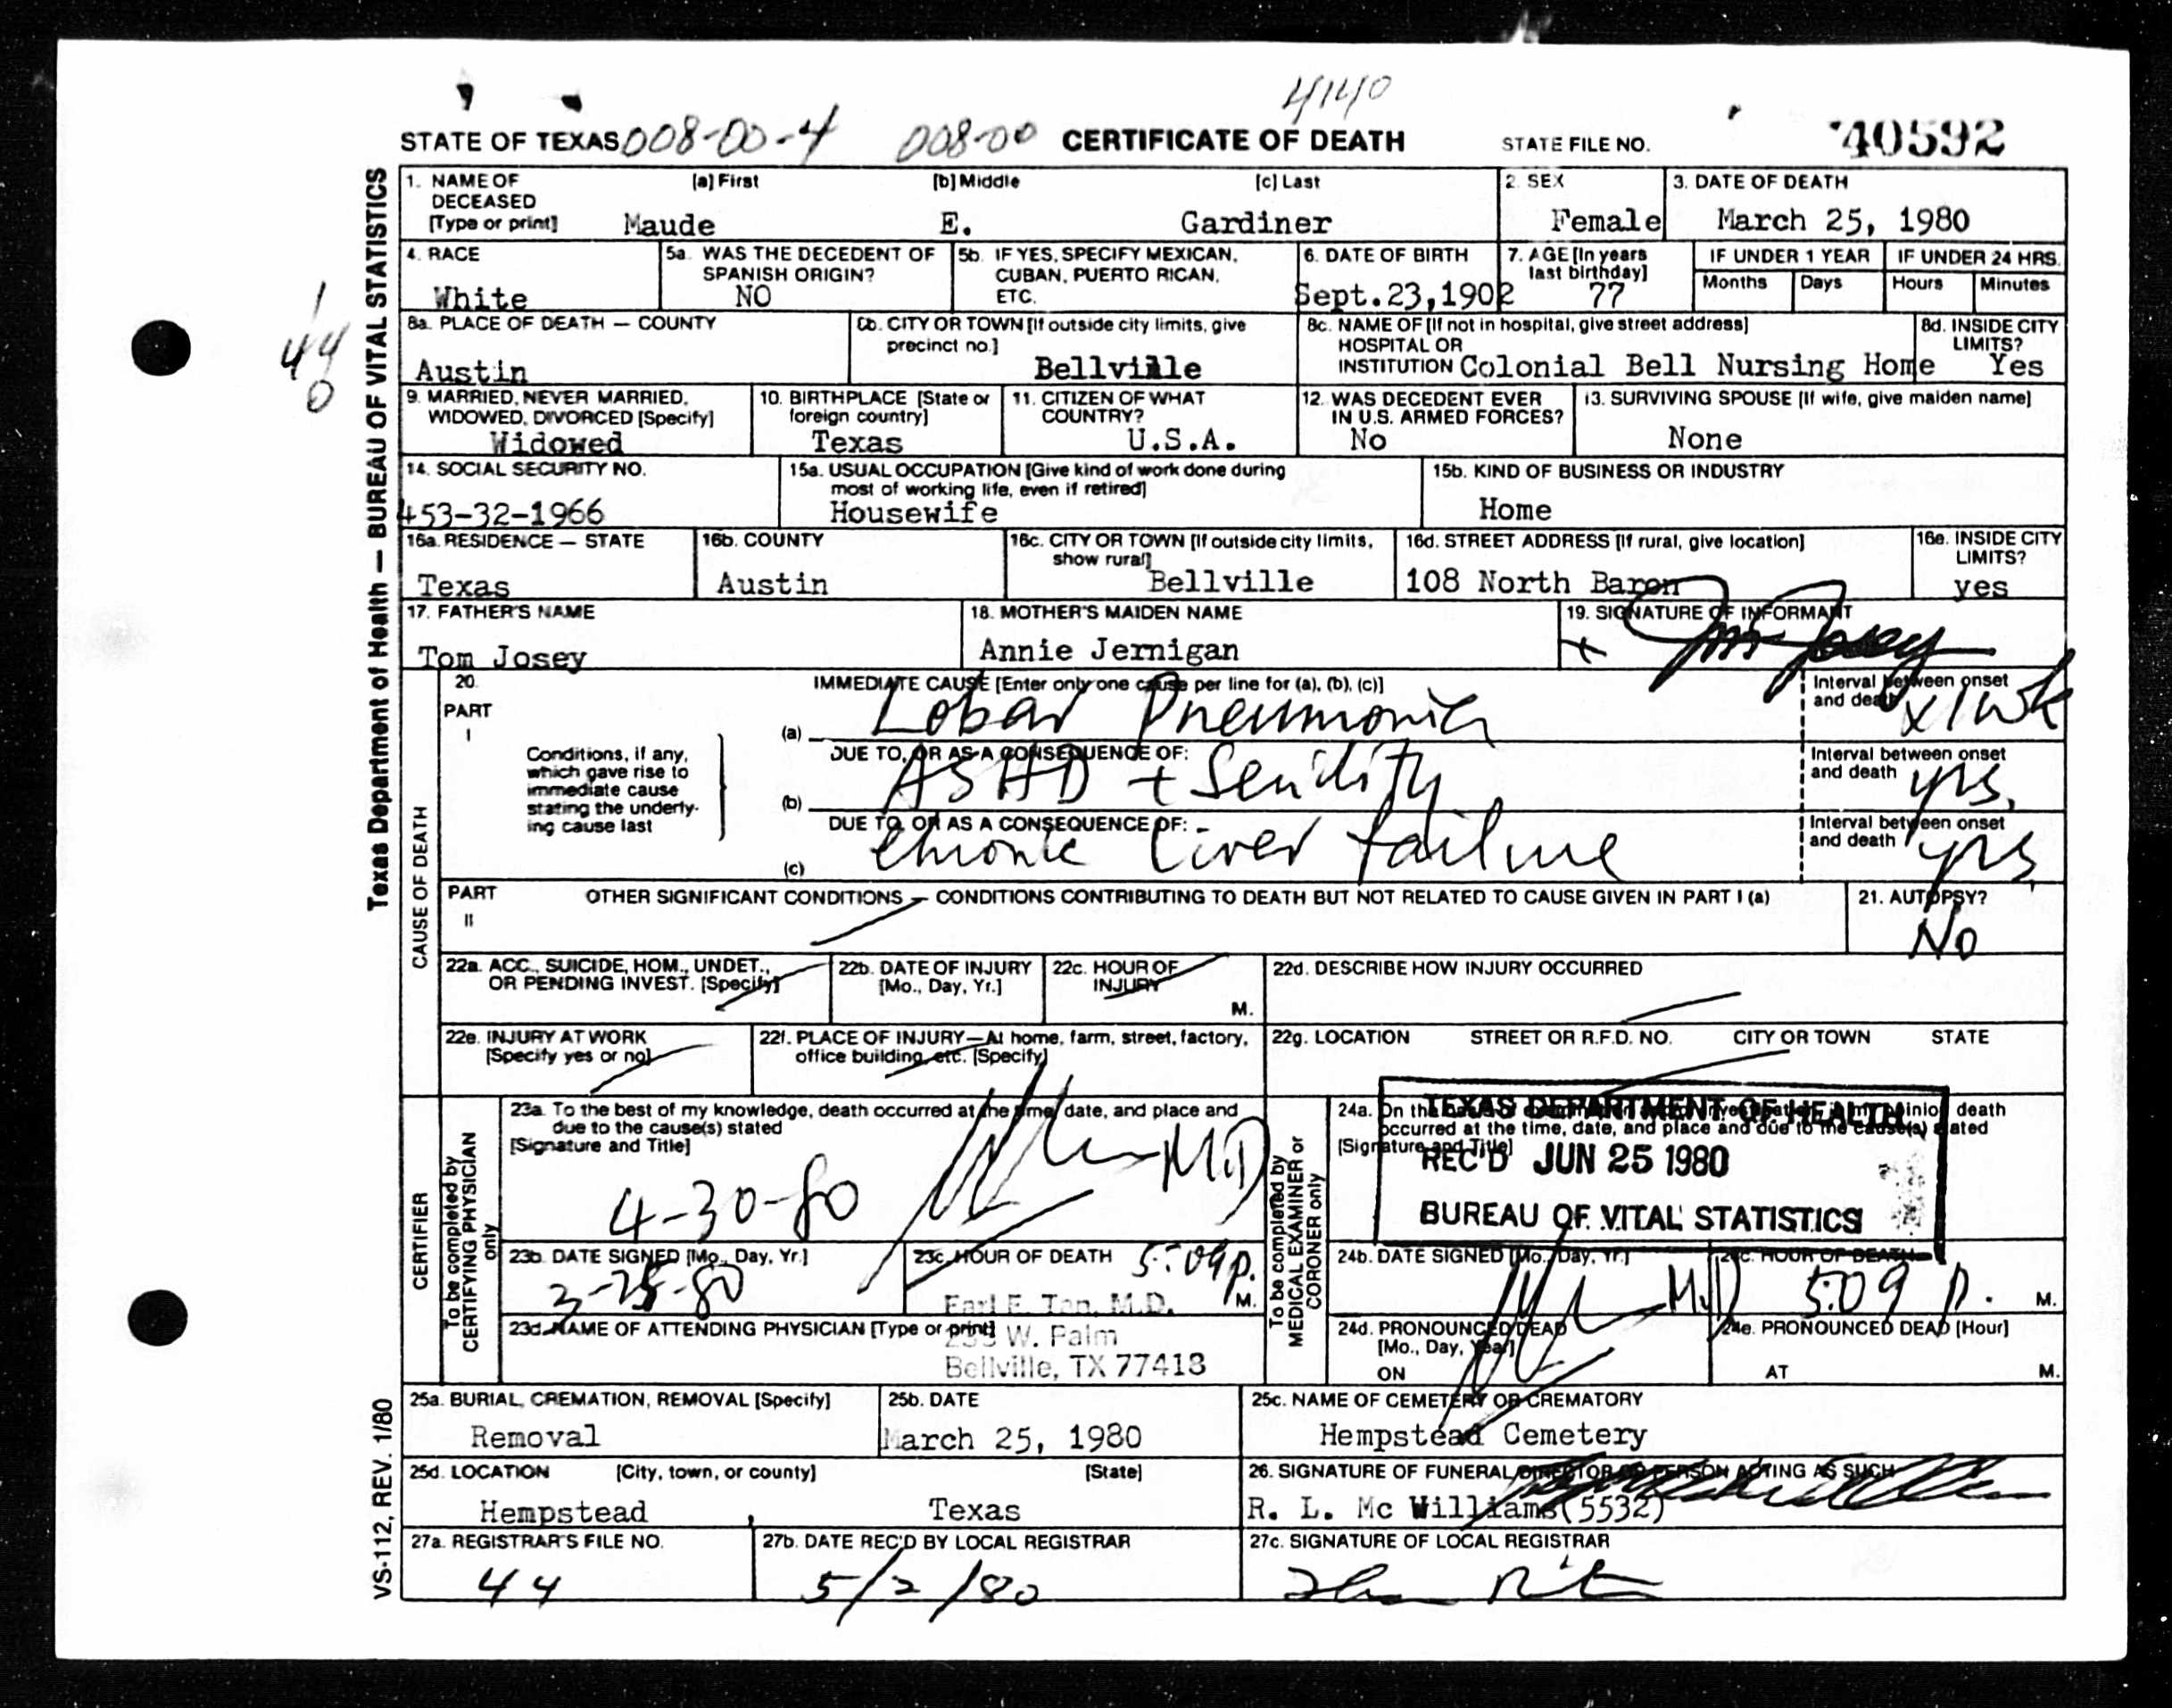 4140
STATE OF TEXAS 008-00-4 008-00 CERTIFICATE OF DEATH STATE FILE NO. 40592
Texas Department of Health — BUREAU OF VITAL STATISTICS
1. NAME OF DECEASED [Type or print] [a] First [b] Middle [c] Last 2. SEX 3. DATE OF DEATH
Maude E. Gardiner Female March 25, 1980
4. RACE 5a. WAS THE DECEDENT OF SPANISH ORIGIN? 5b. IF YES, SPECIFY MEXICAN, CUBAN, PUERTO RICAN, ETC. 6. DATE OF BIRTH 7. AGE [In years last birthday] IF UNDER 1 YEAR Months Days IF UNDER 24 HRS. Hours Minutes
White NO Sept.23,1902 77
8a. PLACE OF DEATH — COUNTY 8b. CITY OR TOWN [If outside city limits, give precinct no.] 8c. NAME OF [If not in hospital, give street address] HOSPITAL OR INSTITUTION 8d. INSIDE CITY LIMITS?
Austin Bellville Colonial Bell Nursing Home Yes
9. MARRIED, NEVER MARRIED, WIDOWED, DIVORCED [Specify] 10. BIRTHPLACE [State or foreign country] 11. CITIZEN OF WHAT COUNTRY? 12. WAS DECEDENT EVER IN U.S. ARMED FORCES? 13. SURVIVING SPOUSE [If wife, give maiden name]
Widowed Texas U.S.A. No None
14. SOCIAL SECURITY NO. 15a. USUAL OCCUPATION [Give kind of work done during most of working life, even if retired] 15b. KIND OF BUSINESS OR INDUSTRY
453-32-1966 Housewife Home
16a. RESIDENCE — STATE 16b. COUNTY 16c. CITY OR TOWN [If outside city limits, show rural] 16d. STREET ADDRESS [If rural, give location] 16e. INSIDE CITY LIMITS?
Texas Austin Bellville 108 North Baron yes
17. FATHER'S NAME 18. MOTHER'S MAIDEN NAME 19. SIGNATURE OF INFORMANT
Tom Josey Annie Jernigan Josey
CAUSE OF DEATH
20. PART I IMMEDIATE CAUSE [Enter only one cause per line for (a), (b), (c)]
Conditions, if any, which gave rise to immediate cause stating the underlying cause last
(a) Lobar Pneumonia Interval between onset and death x 1 wk
DUE TO, OR AS A CONSEQUENCE OF:
(b) ASHD + Senility Interval between onset and death yrs.
DUE TO, OR AS A CONSEQUENCE OF:
(c) Chronic liver failure Interval between onset and death yrs
PART II OTHER SIGNIFICANT CONDITIONS — CONDITIONS CONTRIBUTING TO DEATH BUT NOT RELATED TO CAUSE GIVEN IN PART I (a) 21. AUTOPSY?
No
22a. ACC., SUICIDE, HOM., UNDET., OR PENDING INVEST. [Specify] 22b. DATE OF INJURY [Mo., Day, Yr.] 22c. HOUR OF INJURY M. 22d. DESCRIBE HOW INJURY OCCURRED
22e. INJURY AT WORK [Specify yes or no] 22f. PLACE OF INJURY—At home, farm, street, factory, office building, etc. [Specify] 22g. LOCATION STREET OR R.F.D. NO. CITY OR TOWN STATE
CERTIFIER
To be completed by CERTIFYING PHYSICIAN only
23a. To the best of my knowledge, death occurred at the time, date, and place and due to the cause(s) stated
[Signature and Title]
4-30-80 M.D
23b. DATE SIGNED [Mo., Day, Yr.] 23c. HOUR OF DEATH 5:09 p. M.
3-25-80
23d. NAME OF ATTENDING PHYSICIAN [Type or print]
Earl E. Tan, M.D.
W. Palm
Bellville, TX 77418
To be completed by MEDICAL EXAMINER or CORONER only
24a. On the opinion death occurred at the time, date, and place and due to the cause(s) stated
[Signature and Title]
TEXAS DEPARTMENT OF HEALTH
REC'D JUN 25 1980
BUREAU OF VITAL STATISTICS
24b. DATE SIGNED [Mo., Day, Yr.] 24c. HOUR OF DEATH
M.D 5:09 p. M.
24d. PRONOUNCED DEAD [Mo., Day, Year] ON 24e. PRONOUNCED DEAD [Hour] AT M.
25a. BURIAL, CREMATION, REMOVAL [Specify] 25b. DATE 25c. NAME OF CEMETERY OR CREMATORY
Removal March 25, 1980 Hempstead Cemetery
25d. LOCATION [City, town, or county] [State] 26. SIGNATURE OF FUNERAL DIRECTOR OR PERSON ACTING AS SUCH
Hempstead, Texas R. L. Mc Williams(5532)
27a. REGISTRAR'S FILE NO. 27b. DATE REC'D BY LOCAL REGISTRAR 27c. SIGNATURE OF LOCAL REGISTRAR
44 5/2/80
VS-112, REV. 1/80